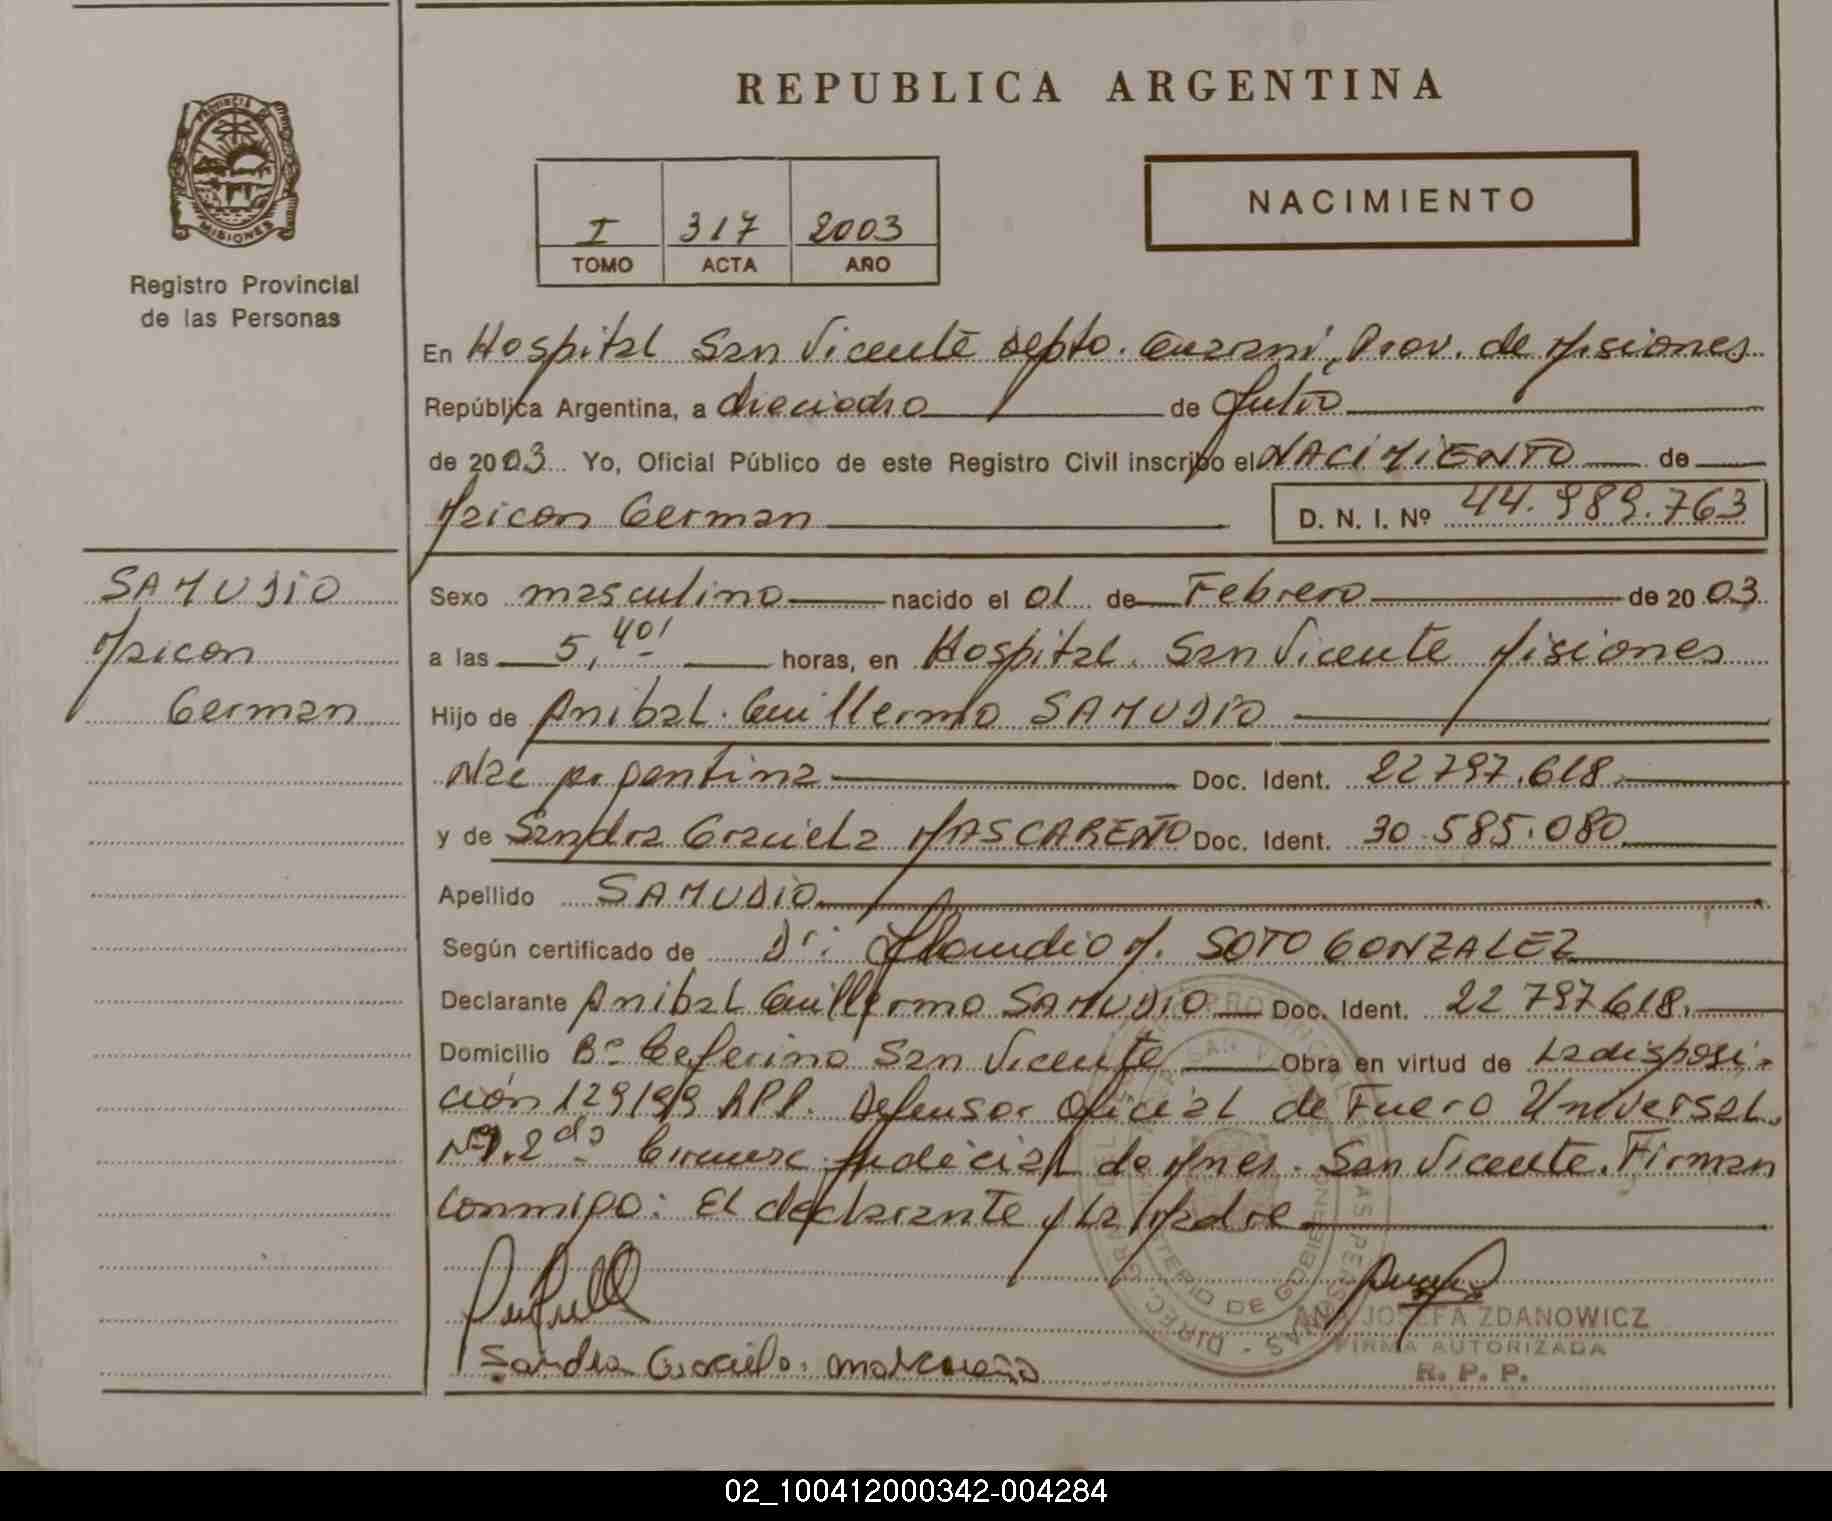 REPUBLICA ARGENTINA
PROVINCIA DE
MISIONES
Registro Provincial
de las Personas
I 317 2003
TOMO ACTA AÑO
NACIMIENTO
En Hospital San Vicente depto. Guarani, Prov. de Misiones
República Argentina, a dieciocho de Julio
de 2003 Yo, Oficial Público de este Registro Civil inscribo el NACIMIENTO de
Maicon German D. N. I. Nº 44.989.763
SAMUDIO
Maicon
German
Sexo masculino nacido el 01 de Febrero de 2003
a las 5,40' horas, en Hospital San Vicente Misiones
Hijo de Anibal Guillermo SAMUDIO
Nac argentina Doc. Ident. 22797.618
y de Sandra Graciela MASCAREÑO Doc. Ident. 30.585.080
Apellido SAMUDIO
Según certificado de Dr: Claudio M. SOTO GONZALEZ
Declarante Anibal Guillermo SAMUDIO Doc. Ident. 22797618
Domicilio Bº Ceferino San Vicente Obra en virtud de La disposi-
ción 129/99 RPP. Defensor Oficial de Fuero Universal
Nº1.2da Circunsc. Judicial de Mnes. San Vicente. Firman
Conmigo: El declarante y La Madre
Sandra Graciela mascareño
ANA JOSEFA ZDANOWICZ
FIRMA AUTORIZADA
R. P. P.
02_100412000342-004284